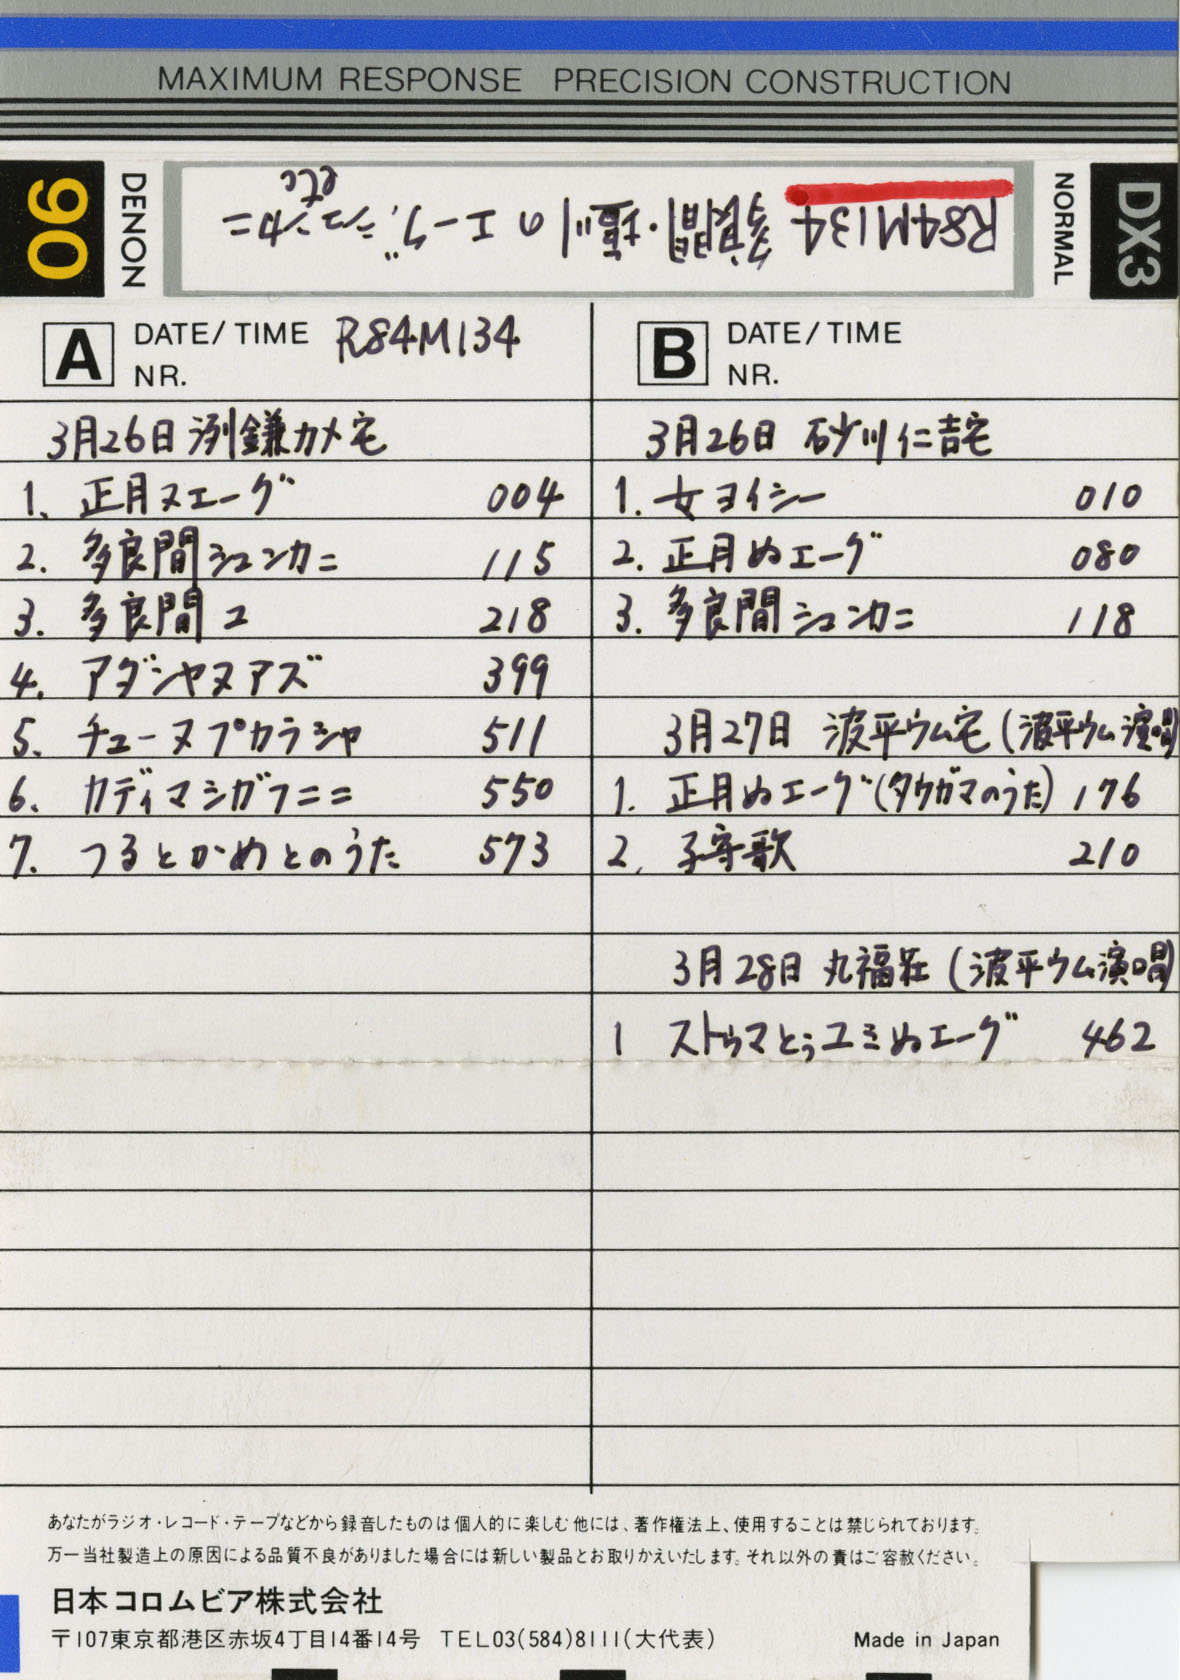 MAXIMUM RESPONSE PRECISION CONSTRUCTION
90 DENON
R84M134 多良間・塩川のエーグ、シュンカニ etc
NORMAL DX3
A DATE/TIME R84M134
NR.
3月26日 洌鎌カメ宅
1. 正月ヌエーグ 004
2. 多良間シュンカニ 115
3. 多良間ユ 218
4. アダンヤヌアズ 399
5. チューヌプカラシャ 511
6. カディマシガフニニ 550
7. つるとかめとのうた 573
B DATE/TIME
NR.
3月26日 砂川仁吉宅
1. 女ヨイシー 010
2. 正月ぬエーグ 080
3. 多良間シュンカニ 118
3月27日 波平ウム宅(波平ウム演唱)
1. 正月ぬエーグ(タウガマのうた) 176
2. 子守歌 210
3月28日 丸福荘(波平ウム演唱)
1 ストゥマとぅユミぬエーグ 462
あなたがラジオ・レコード・テープなどから録音したものは個人的に楽しむ他には、著作権法上、使用することは禁じられております。
万一当社製造上の原因による品質不良がありました場合には新しい製品とお取りかえいたします。それ以外の責はご容赦ください。
日本コロムビア株式会社
〒107東京都港区赤坂4丁目14番14号 TEL03(584)8111(大代表)
Made in Japan